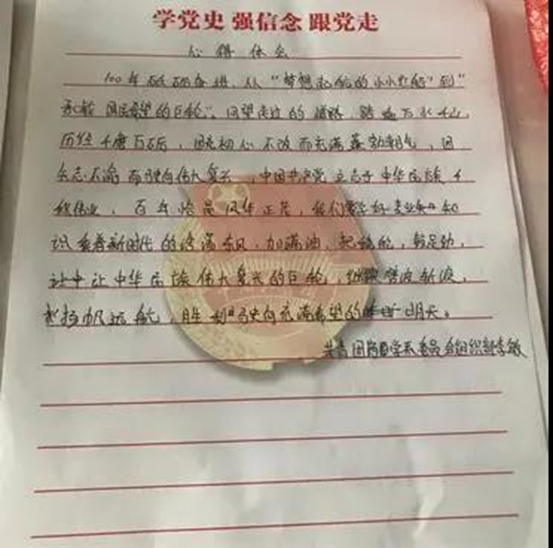 学党史 强信念 跟党走
心得体会
100年砥砺奋进,从“梦想起航的小小红船”到“
承载 国民希望的巨轮”。回望走过的道路,跨越万水千山,
历经千磨万砺,因初心不改而充满蓬勃朝气,因
矢志不渝而驶向伟大复兴,中国共产党立志于中华民族千
秋伟业,百年恰是风华正茂,我们要学好专业知
识 乘着新时代的浩荡东风,加满油,把稳舵,鼓足劲,
让中华民族伟大复兴的巨轮,继续劈波斩浪,
扬帆远航,胜利驶向充满希望的明天。
共青团 委员会组织部李敏